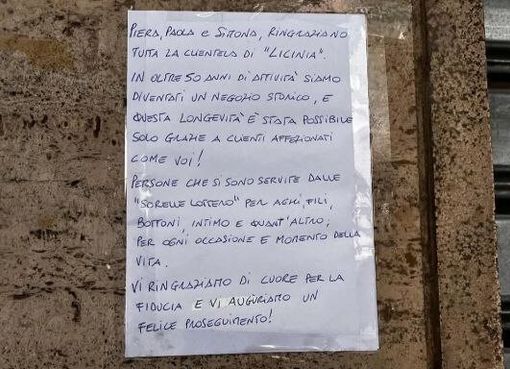 PIERA, PAOLA E SIMONA, RINGRAZIANO
TUTTA LA CLIENTELA DI "LICINIA".
IN OLTRE 50 ANNI DI ATTIVITÀ SIAMO
DIVENTATI UN NEGOZIO STORICO, E
QUESTA LONGEVITÀ È STATA POSSIBILE
SOLO GRAZIE A CLIENTI AFFEZIONATI
COME VOI!
PERSONE CHE SI SONO SERVITE DALLE
"SORELLE LOTTERO" PER AGHI, FILI,
BOTTONI, INTIMO E QUANT'ALTRO;
PER OGNI OCCASIONE E MOMENTO DELLA
VITA.
VI RINGRAZIAMO DI CUORE PER LA
FIDUCIA E VI AUGURIAMO UN
FELICE PROSEGUIMENTO!